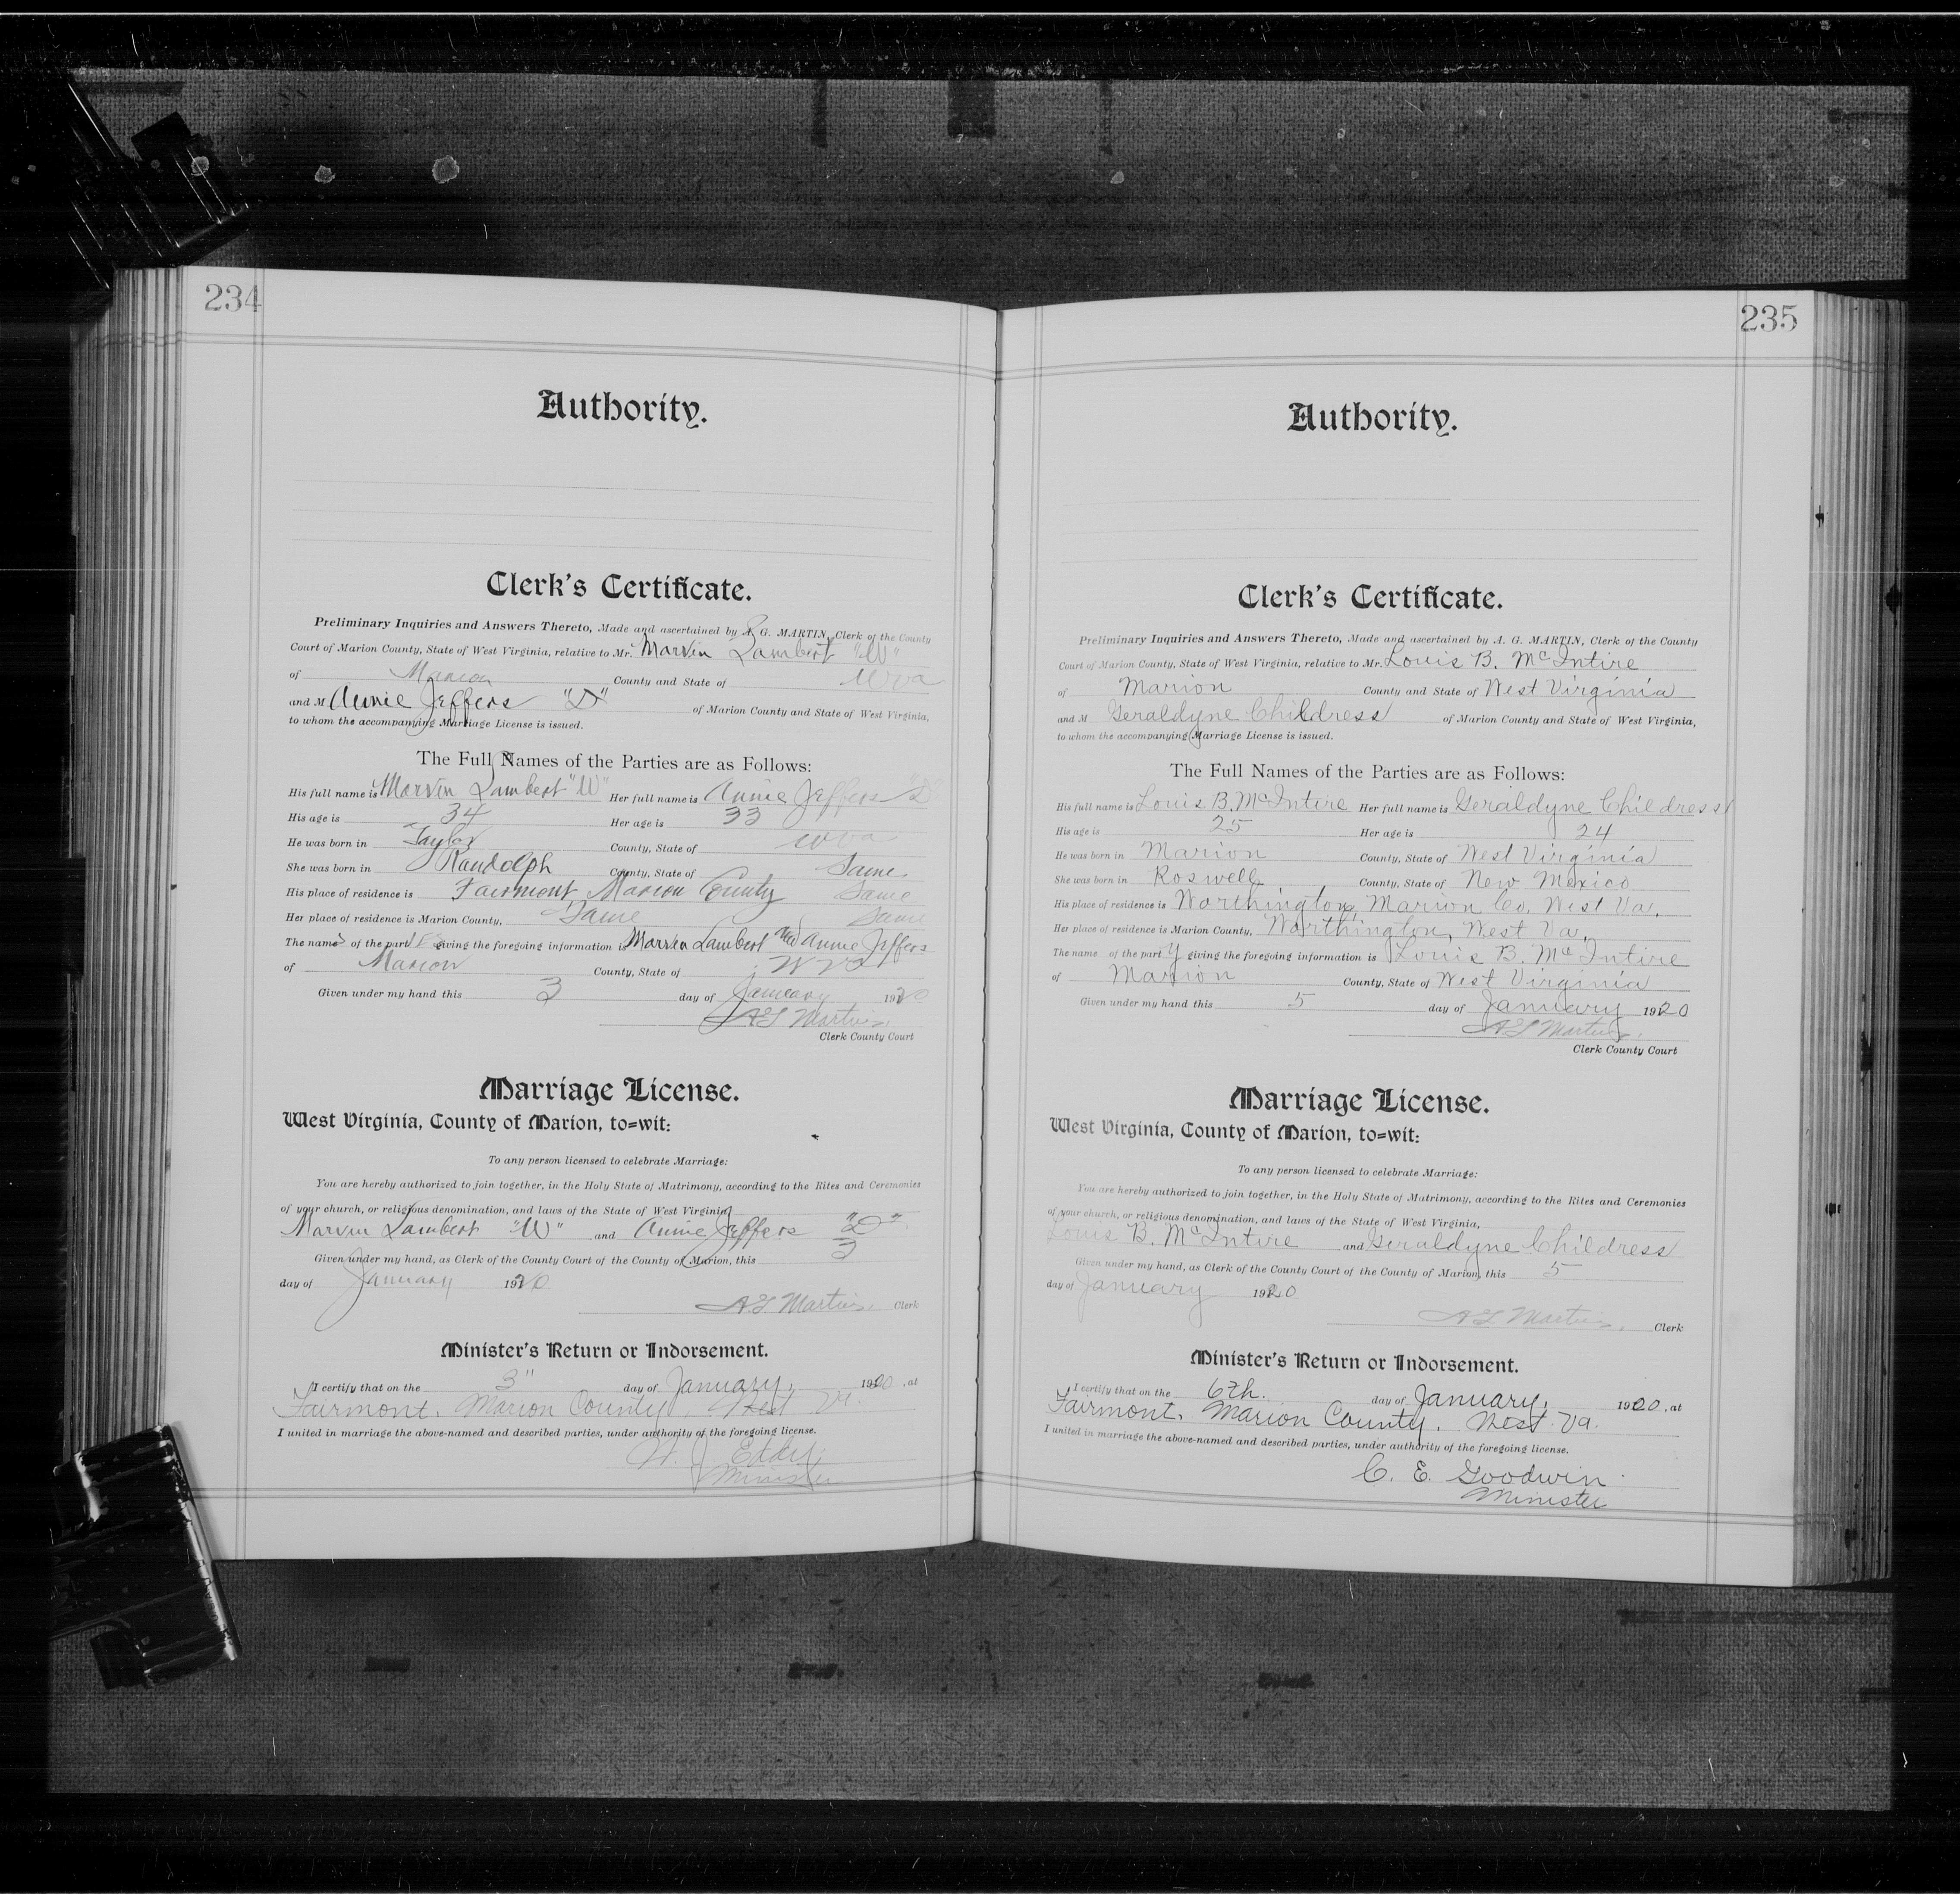 234
Authority.
Clerk's Certificate.
Preliminary Inquiries and Answers Thereto, Made and ascertained by A. G. MARTIN, Clerk of the County
Court of Marion County, State of West Virginia, relative to Mr. Marvin Lambert "W"
of Marion County and State of Wva
and M Annie Jeffers "D" of Marion County and State of West Virginia,
to whom the accompanying Marriage License is issued.
The Full Names of the Parties are as Follows:
His full name is Marvin Lambert "W" Her full name is Annie Jeffers "D"
His age is 34 Her age is 33
He was born in Taylor County, State of Wva
She was born in Randolph County, State of Same
His place of residence is Fairmont, Marion County Same
Her place of residence is Marion County, Same Same
The names of the parties giving the foregoing information is Marvin Lambert and Annie Jeffers
of Marion County, State of W Va
Given under my hand this 3 day of January 1920
A G Martin,
Clerk County Court
Marriage License.
West Virginia, County of Marion, to=wit:
To any person licensed to celebrate Marriage:
You are hereby authorized to join together, in the Holy State of Matrimony, according to the Rites and Ceremonies
of your church, or religious denomination, and laws of the State of West Virginia,
Marvin Lambert "W" and Annie Jeffers "D"
Given under my hand, as Clerk of the County Court of the County of Marion, this 3
day of January 1920
A G Martin, Clerk
Minister's Return or Indorsement.
I certify that on the 3" day of January, 1920, at
Fairmont, Marion County, West Va.
I united in marriage the above-named and described parties, under authority of the foregoing license.
W. J. Eddy,
Minister
235
Authority.
Clerk's Certificate.
Preliminary Inquiries and Answers Thereto, Made and ascertained by A. G. MARTIN, Clerk of the County
Court of Marion County, State of West Virginia, relative to Mr. Louis B. McIntire
of Marion County and State of West Virginia
and M Geraldyne Childress of Marion County and State of West Virginia,
to whom the accompanying Marriage License is issued.
The Full Names of the Parties are as Follows:
His full name is Louis B. McIntire Her full name is Geraldyne Childress
His age is 25 Her age is 24
He was born in Marion County, State of West Virginia
She was born in Roswell County, State of New Mexico
His place of residence is Worthington, Marion Co. West Va.
Her place of residence is Marion County, Worthington, West Va.
The name of the party giving the foregoing information is Louis B. McIntire
of Marion County, State of West Virginia
Given under my hand this 5 day of January 1920
A G Martin,
Clerk County Court
Marriage License.
West Virginia, County of Marion, to=wit:
To any person licensed to celebrate Marriage:
You are hereby authorized to join together, in the Holy State of Matrimony, according to the Rites and Ceremonies
of your church, or religious denomination, and laws of the State of West Virginia,
Louis B. McIntire and Geraldyne Childress
Given under my hand, as Clerk of the County Court of the County of Marion, this 5
day of January 1920
A G Martin, Clerk
Minister's Return or Indorsement.
I certify that on the 6th. day of January, 1920, at
Fairmont, Marion County, West Va.
I united in marriage the above-named and described parties, under authority of the foregoing license.
C. E. Goodwin
Minister